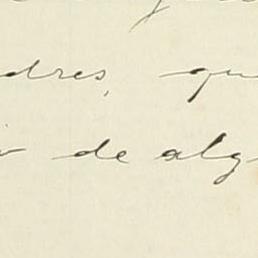 dres, qu
de alg